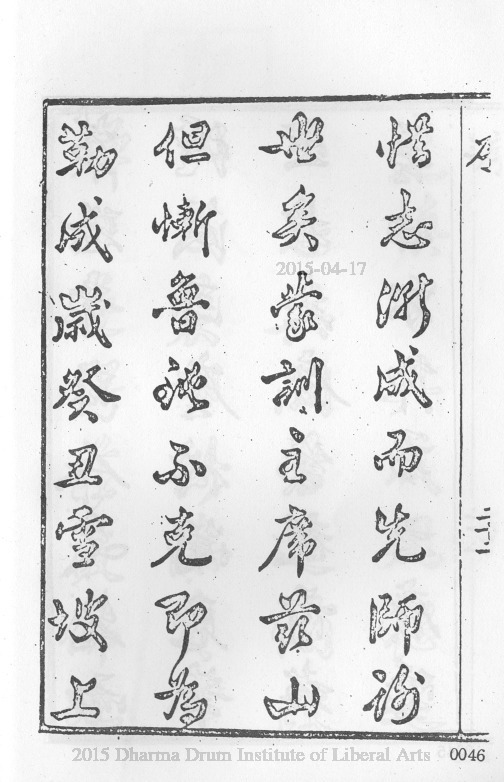 序
惜志漸成而先師謝
世矣蒙訓主席茲山
但慚魯鈍不克即為
勒成歲癸丑雪坡上
2015-04-17
2015 Dharma Drum Institute of Liberal Arts
0046